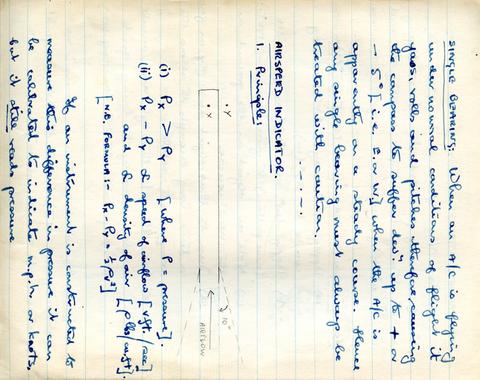 SINGLE BEARING: When an A/C is flying
under normal conditions of flight it
yaws, rolls and pitches therefore causing
the compass to suffer devn up to + or
- 5° [i.e. E. or W.] when the A/C is
apparently on a steady course. Hence
any single bearing must always be
treated with caution.
AIRSPEED INDICATOR.
1. Principle:
• Y
• X
10°
AIRFLOW
(i) Px > Py [where P = pressure].
(ii) Px - Py ∝ speed of airflow [v ft./sec]
and ∝ density of air [ρ lbs/cu.ft].
[N.B. FORMULA:- Px - Py = ½ρv²]
If an instrument is constructed to
measure this difference in pressure it can
be calibrated to indicate m.p.h. or knots,
but it still reads pressure